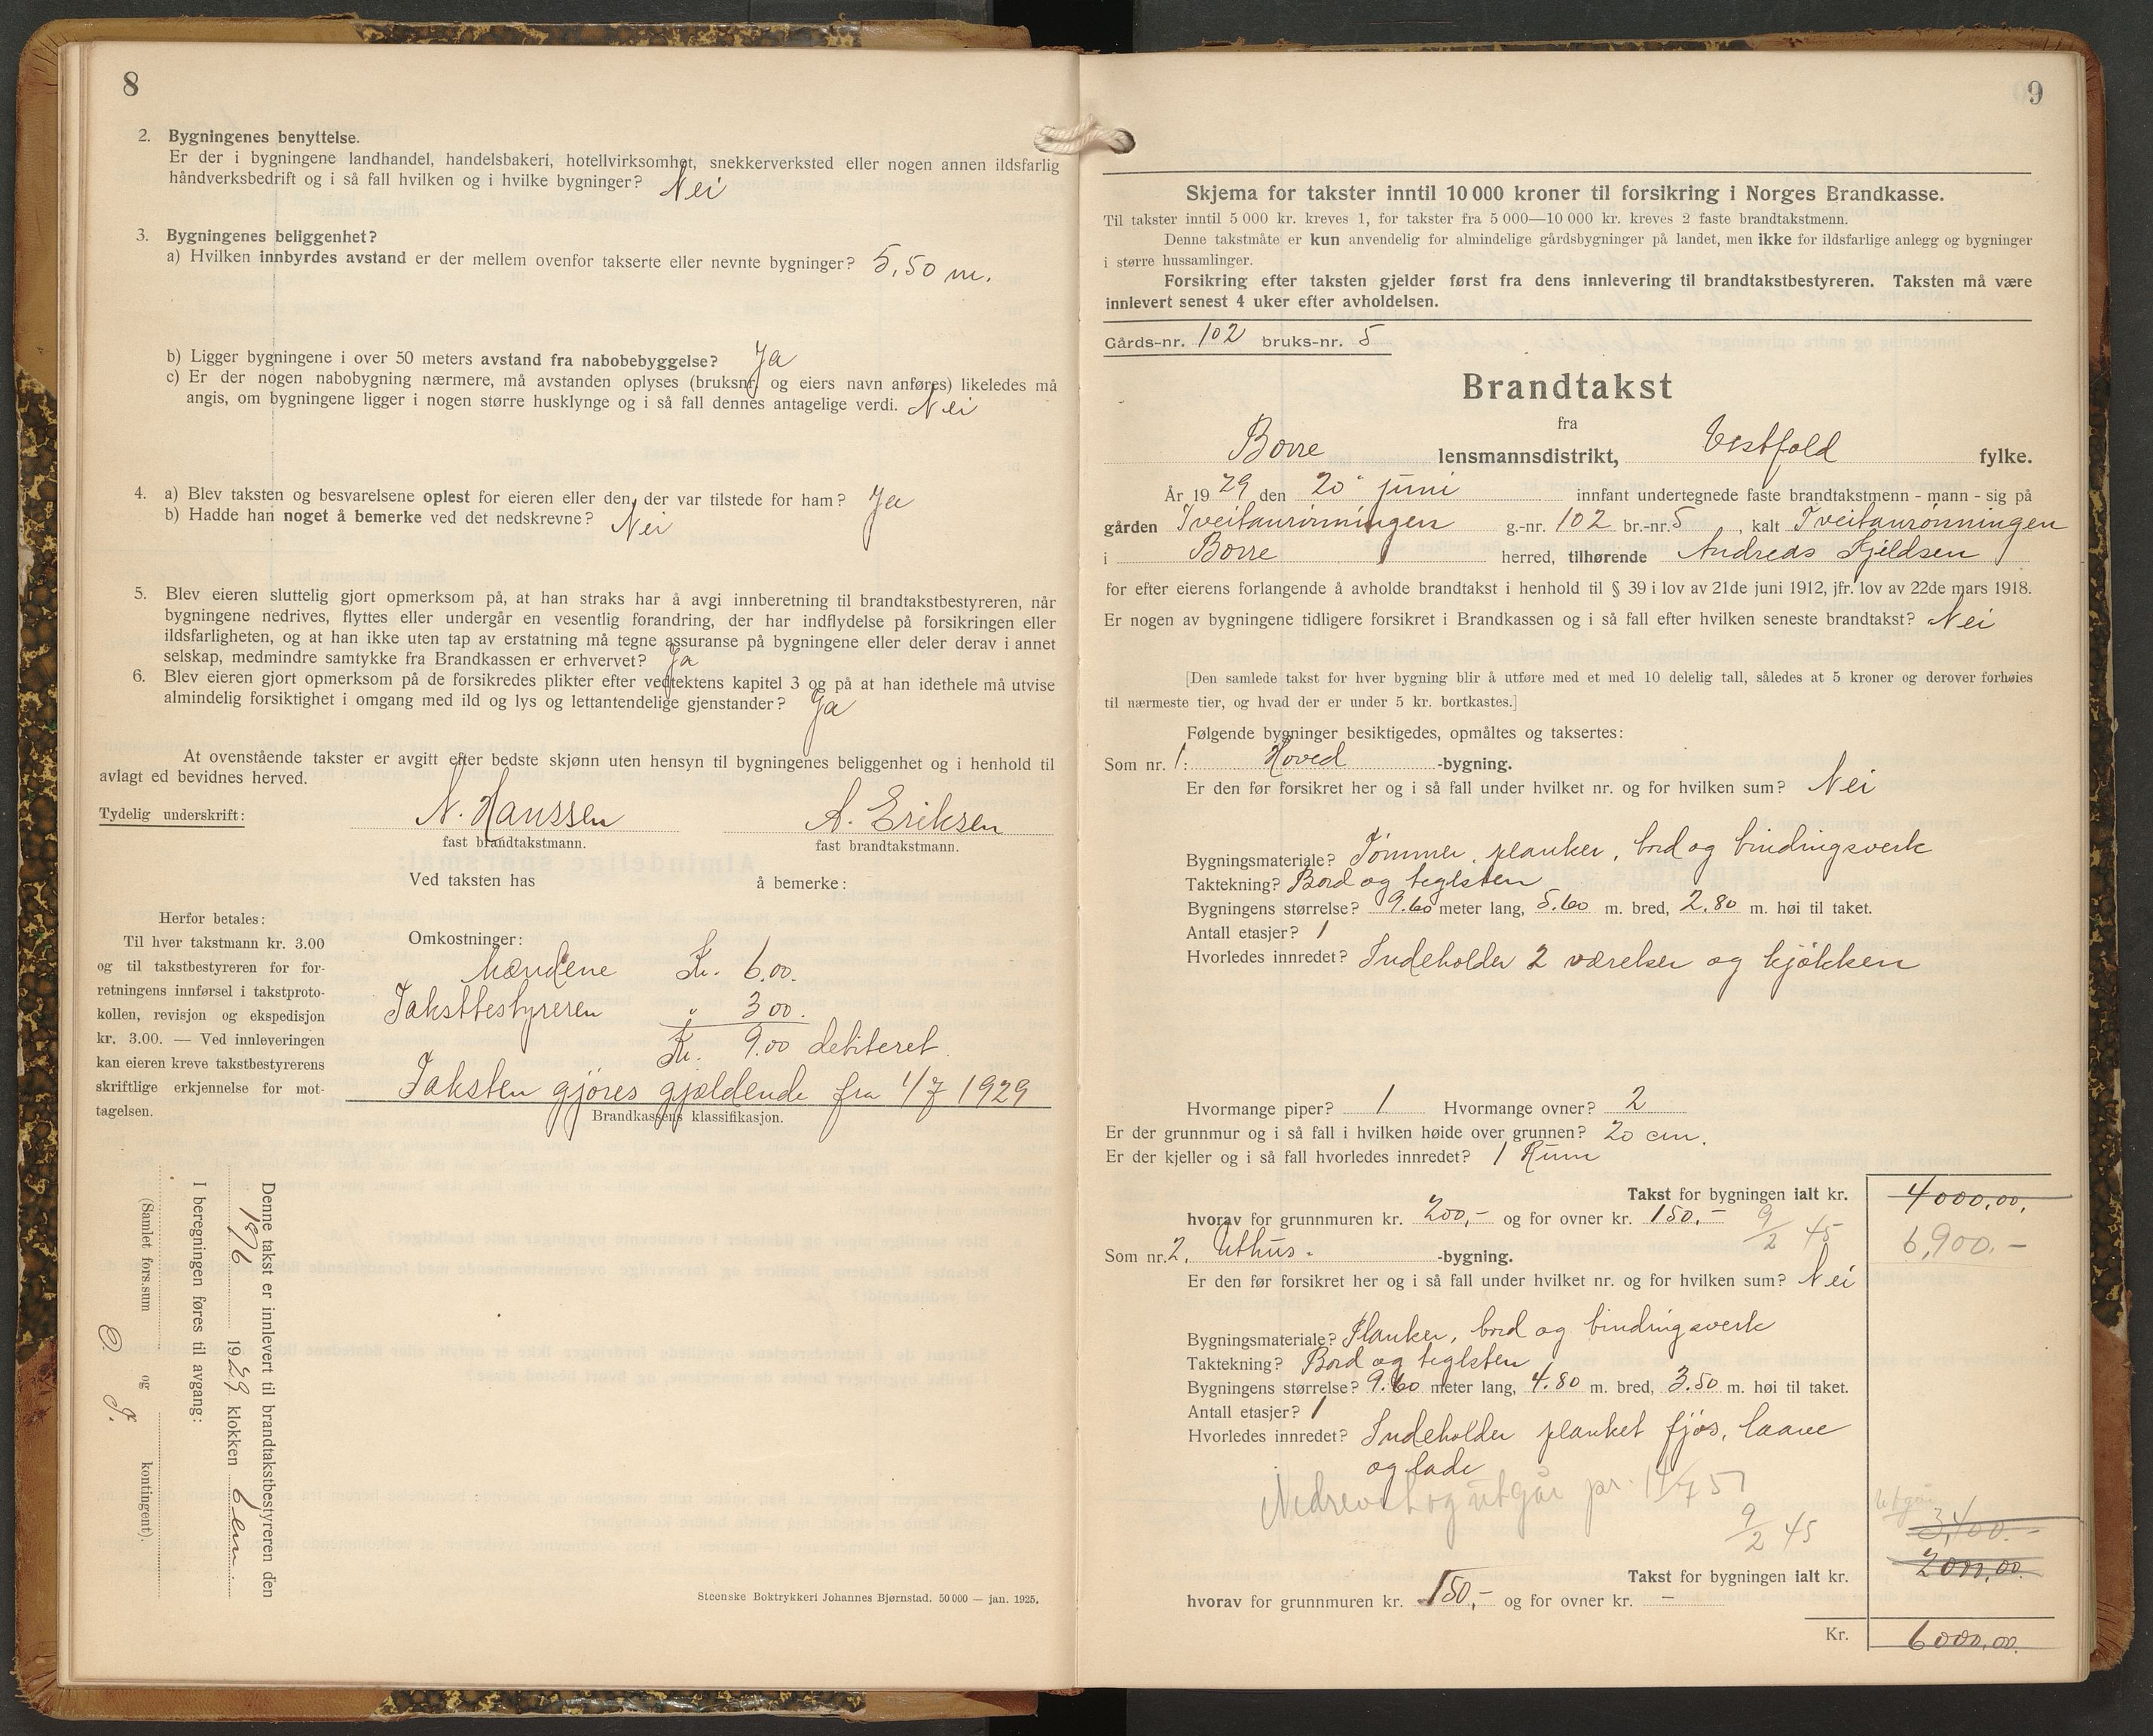 8
2. Bygningenes benyttelse.
Er der i bygningene landhandel, handelsbakeri, hotellvirksomhet, snekkerverksted eller nogen annen ildsfarlig
håndverksbedrift og i så fall hvilken og i hvilke bygninger? Nei
3. Bygningenes beliggenhet?
a) Hvilken innbyrdes avstand er der mellem ovenfor takserte eller nevnte bygninger? 5,50 m.
b) Ligger bygningene i over 50 meters avstand fra nabobebyggelse? Ja
c) Er der nogen nabobygning nærmere, må avstanden oplyses (bruksnr. og eiers navn anføres) likeledes må
angis, om bygningene ligger i nogen større husklynge og i så fall dennes antagelige verdi. Nei
4. a) Blev taksten og besvarelsene oplest for eieren eller den, der var tilstede for ham? Ja
b) Hadde han noget å bemerke ved det nedskrevne? Nei
5. Blev eieren sluttelig gjort opmerksom på, at han straks har å avgi innberetning til brandtakstbestyreren, når
bygningene nedrives, flyttes eller undergår en vesentlig forandring, der har indflydelse på forsikringen eller
ildsfarligheten, og at han ikke uten tap av erstatning må tegne assuranse på bygningene eller deler derav i annet
selskap, medmindre samtykke fra Brandkassen er erhvervet? Ja
6. Blev eieren gjort opmerksom på de forsikredes plikter efter vedtektens kapitel 3 og på at han idethele må utvise
almindelig forsiktighet i omgang med ild og lys og lettantendelige gjenstander? Ja
At ovenstående takster er avgitt efter bedste skjønn uten hensyn til bygningenes beliggenhet og i henhold til
avlagt ed bevidnes herved.
Tydelig underskrift: N. Hanssen A. Eriksen
fast brandtakstmann. fast brandtakstmann.
Ved taksten has å bemerke:
Herfor betales:
Til hver takstmann kr. 3.00
og til takstbestyreren for for-
retningens innførsel i takstproto-
kollen, revisjon og ekspedisjon
kr. 3.00. — Ved innleveringen
kan eieren kreve takstbestyrerens
skriftlige erkjennelse for mot-
tagelsen.
Omkostninger:
Mændene Kr. 6.00.
Takstbestyreren " 3 00.
Kr. 9.00 debiteret.
Taksten gjøres gjældende fra 1/7 1929
Brandkassens klassifikasjon.
Denne takst er innlevert til brandtakstbestyreren den
19/6 1929 klokken 6 em.
I beregningen føres til avgang:
(Samlet fors.sum og kontingent).
Steenske Boktrykkeri Johannes Bjørnstad. 50 000 — jan. 1925.
9
Skjema for takster inntil 10 000 kroner til forsikring i Norges Brandkasse.
Til takster inntil 5 000 kr. kreves 1, for takster fra 5 000—10 000 kr. kreves 2 faste brandtakstmenn.
Denne takstmåte er kun anvendelig for almindelige gårdsbygninger på landet, men ikke for ildsfarlige anlegg og bygninger
i større hussamlinger.
Forsikring efter taksten gjelder først fra dens innlevering til brandtakstbestyreren. Taksten må være
innlevert senest 4 uker efter avholdelsen.
Gårds-nr. 102 bruks-nr. 5
Brandtakst
fra
Borre lensmannsdistrikt, Vestfold fylke.
År 1929 den 20 juni innfant undertegnede faste brandtakstmenn - mann - sig på
gården Tveitanrönningen g.-nr. 102 br.-nr. 5, kalt Tveitanrönningen
i Borre herred, tilhørende Andreas Kjeldsen
for efter eierens forlangende å avholde brandtakst i henhold til § 39 i lov av 21de juni 1912, jfr. lov av 22de mars 1918.
Er nogen av bygningene tidligere forsikret i Brandkassen og i så fall efter hvilken seneste brandtakst? Nei
[Den samlede takst for hver bygning blir å utføre med et med 10 delelig tall, således at 5 kroner og derover forhøies
til nærmeste tier, og hvad der er under 5 kr. bortkastes.]
Følgende bygninger besiktigedes, opmåltes og taksertes:
Som nr. 1: Hoved -bygning.
Er den før forsikret her og i så fall under hvilket nr. og for hvilken sum? Nei
Bygningsmateriale? Tømmer, planker, bord og bindingsverk
Taktekning? Bord og teglsten
Bygningens størrelse? 9.60 meter lang, 5.60 m. bred, 2.80 m. høi til taket.
Antall etasjer? 1
Hvorledes innredet? Indeholder 2 værelser og kjøkken
Hvormange piper? 1 Hvormange ovner? 2
Er der grunnmur og i så fall i hvilken høide over grunnen? 20 cm.
Er der kjeller og i så fall hvorledes innredet? 1 Rum
Takst for bygningen ialt kr. 4000,00.
hvorav for grunnmuren kr. 200,- og for ovner kr. 150,- 9/2 45 6,900.-
Som nr. 2. Uthus. -bygning.
Er den før forsikret her og i så fall under hvilket nr. og for hvilken sum? Nei
Bygningsmateriale? Planker, bord og bindingsverk
Taktekning? Bord og teglsten
Bygningens størrelse? 9.60 meter lang, 4.80 m. bred, 3.50 m. høi til taket.
Antall etasjer? 1
Hvorledes innredet? Indeholder planket fjøs, laave
og lade
Nedrevet og utgår pr. 57
Utgår
9/2 45 3,400.-
2000,00.
Takst for bygningen ialt kr.
hvorav for grunnmuren kr. 150,- og for ovner kr. -
Kr. 6000,00.